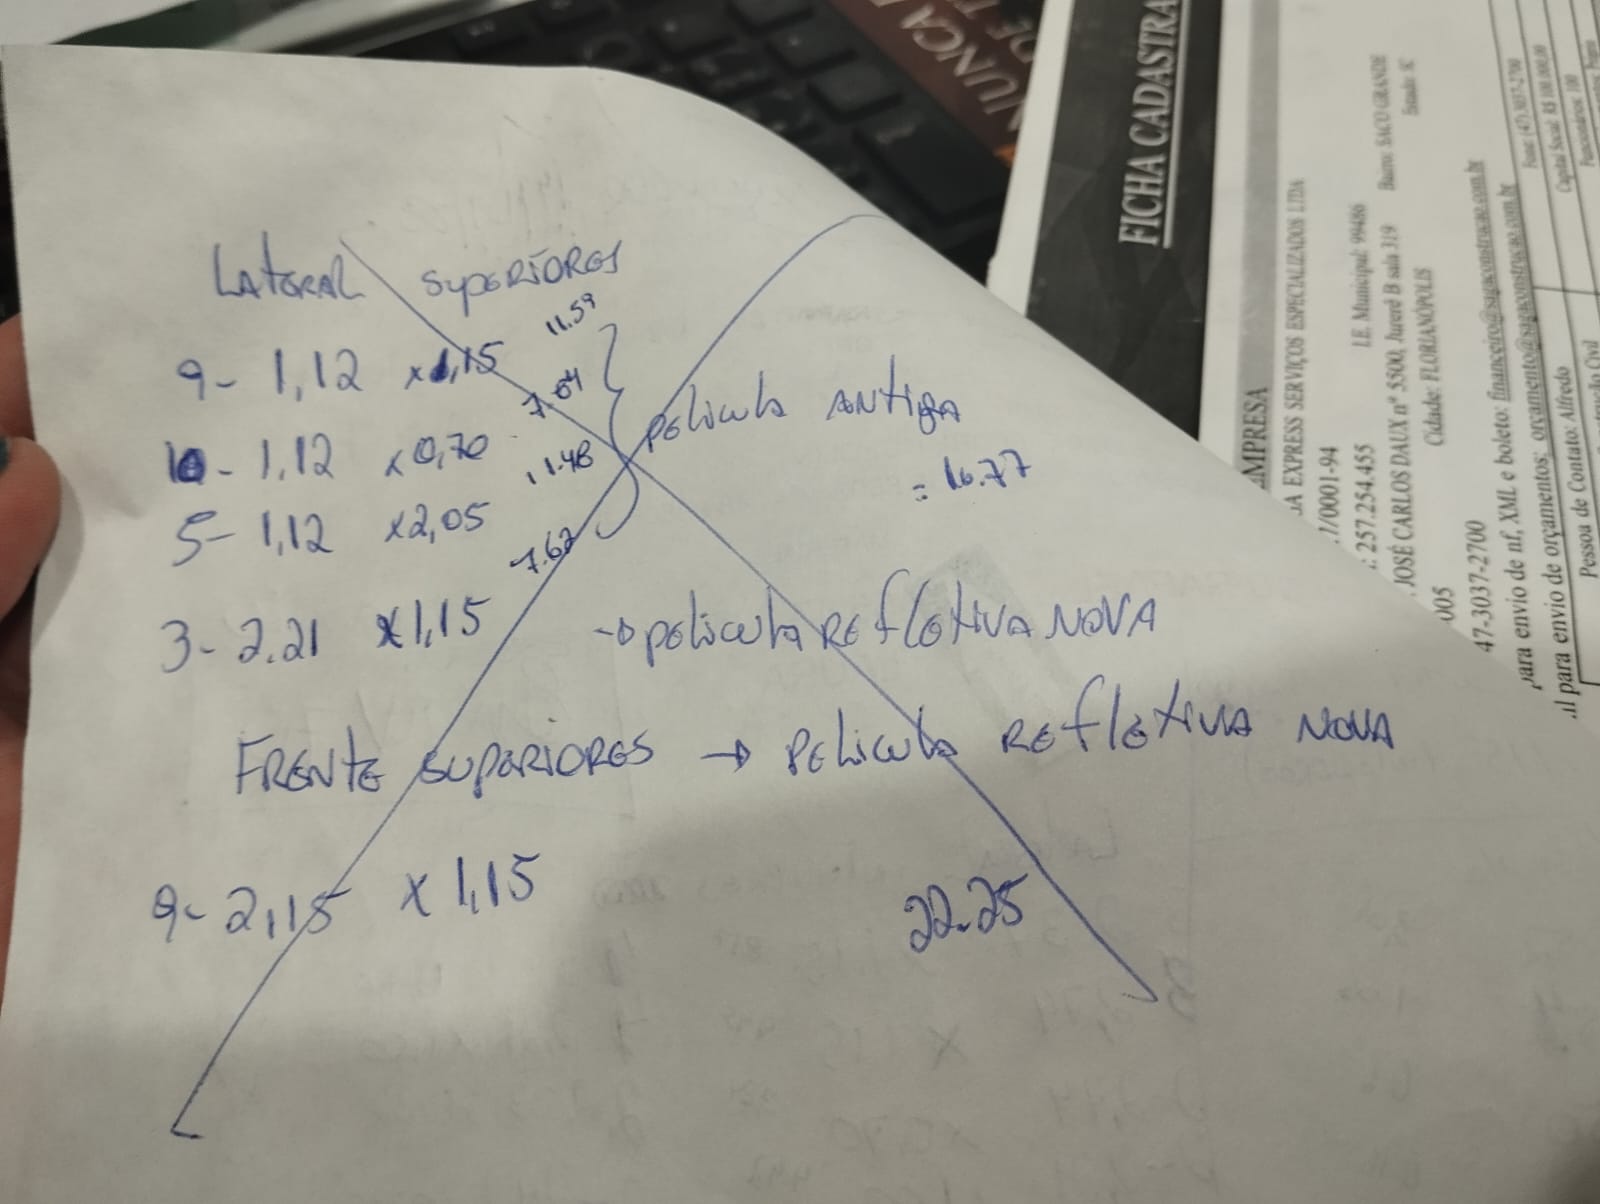 LATERAL SUPERIORES
9- 1,12 x1,15 11.59
10- 1,12 x0,70 7.84
5- 1,12 x2,05 11.48
película ANTIGA
= 16.77
3- 2.21 x1,15 7.62
→ película REFLETIVA NOVA
FRENTE SUPERIORES → PELICULA REFLETIVA NOVA
9- 2,15 x 1,15
22.25
NUNCA
DE
FICHA CADASTRA
MPRESA
A EXPRESS SERVIÇOS ESPECIALIZADOS LTDA
1/0001-94
: 257.254.455 I.E. Municipal: 99486
JOSÉ CARLOS DAUX nº 5500, Jurerê B sala 319 Bairro: SACO GRANDE
Cidade: FLORIANÓPOLIS Estado: SC
005
47-3037-2700 Fone: (47) 3037-2700
para envio de nf, XML e boleto: financeiro@sagaconstrucao.com.br Capital Social: R$ 100.000,00
il para envio de orçamentos: orçamento@sagaconstrucao.com.br Funcionários: 100
Pessoa de Contato: Alfredo